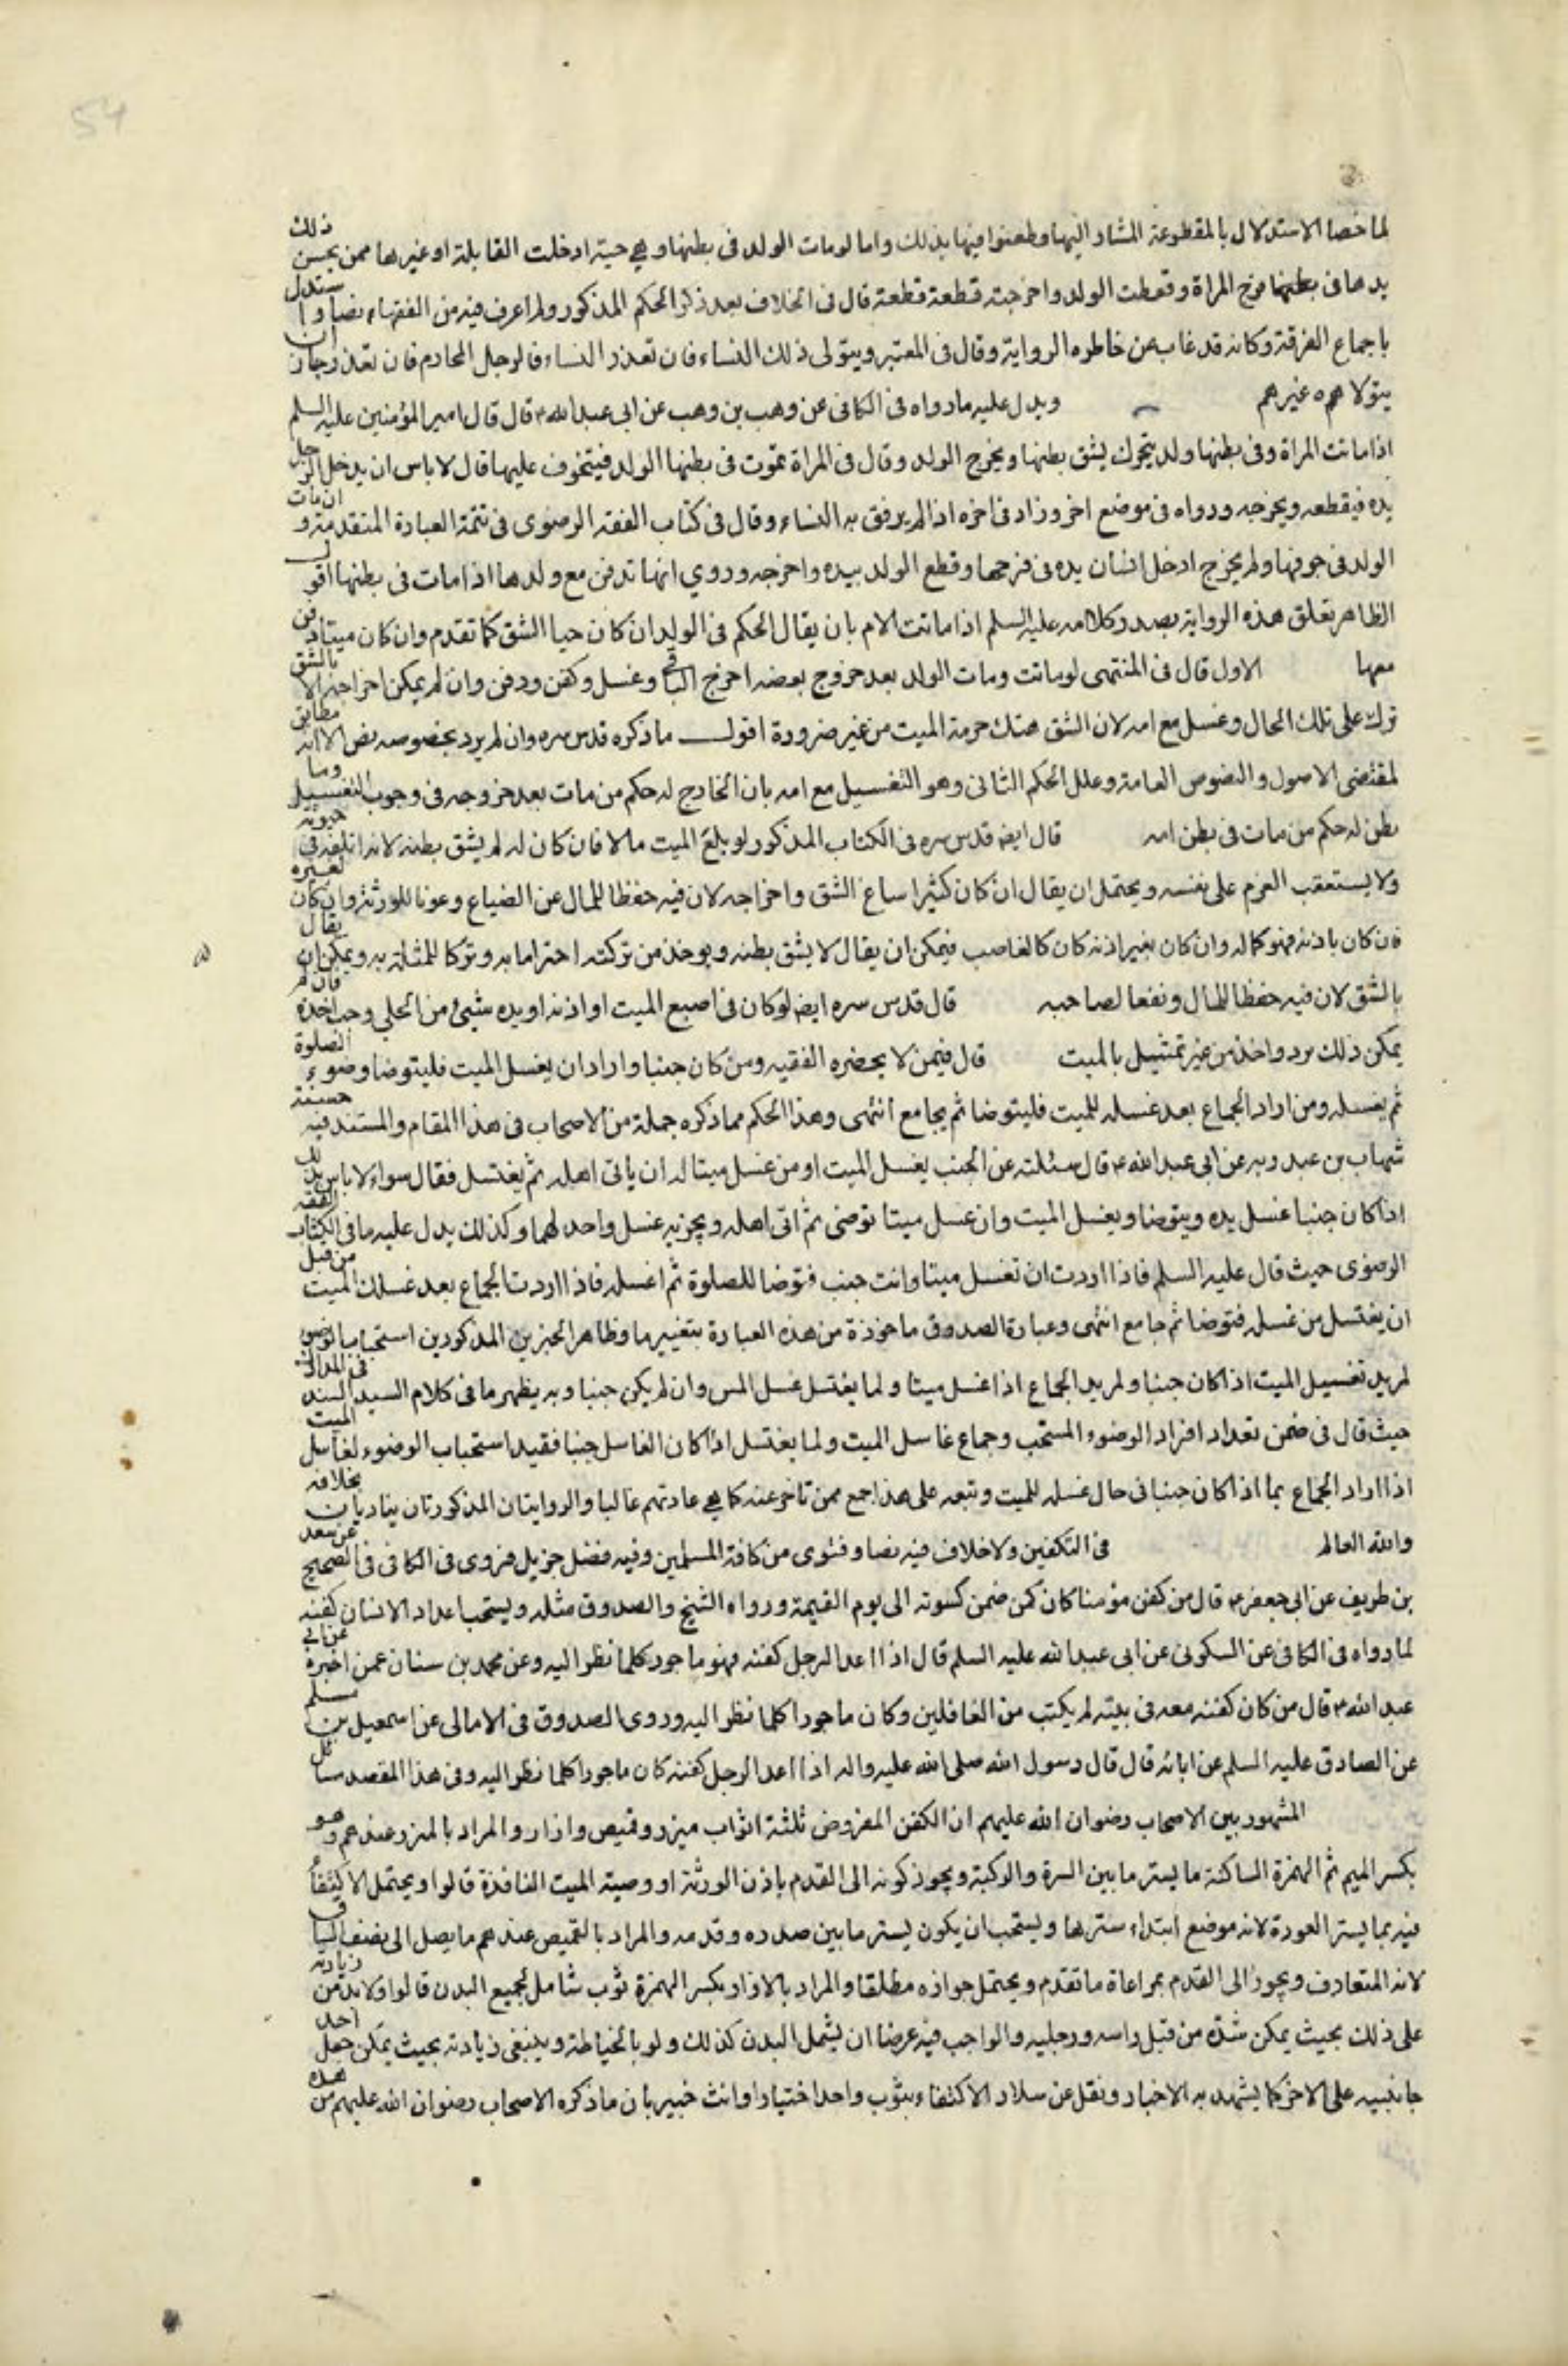 54
لما خصا الاستدلال بالمقطوعة المشار اليها وطعنوا فيها بذلك واما لو مات الولد فى بطنها وهي حية ادخلت القابلة او غيرها ممن يحسن ذلك
يدها فى بطنها فرج المراة وقطعت الولد واخرجته قطعة قطعة قال فى الخلاف بعد ذكر الحكم المذكور ولم اعرف فيه من الفقهاء نصا واستدل
باجماع الفرقة وكانه قد غاب عن خاطره الرواية وقال فى المعتبر ويتولى ذلك النساء فان تعذر النساء فالرجل المحارم فان تعذر جاز ان
يتولاه غيرهم ويدل عليه مارواه فى الكافى عن وهب بن وهب عن ابى عبد الله ع قال قال امير المؤمنين عليه السلم
اذا ماتت المراة وفى بطنها ولد يتحرك يشق بطنها ويخرج الولد وقال فى المراة تموت فى بطنها الولد فيتخوف عليها قال لا باس ان يدخل الرجل
يده فيقطعه ويخرجه ورواه فى موضع اخر وزاد فى اخره اذا لم يرفق به النساء وقال فى كتاب الفقه الرضوى فى تتمة العبارة المتقدمة وان مات
الولد فى جوفها ولم يخرج ادخل انسان يده فى فرجها وقطع الولد بيده واخرجه وروي انها تدفن مع ولدها اذا مات فى بطنها اقول
الظاهر تعلق هذه الرواية بصدر كلامه عليه السلم اذا ماتت الام بان يقال الحكم فى الولد ان كان حيا الشق كما تقدم وان كان ميتا دفن
معها الاول قال فى المنتهى لو ماتت ومات الولد بعد خروج بعضه اخرج الباقى وغسل وكفن ودفن وان لم يمكن اخراجه الا بالشق
ترك على تلك الحال وغسل مع امه لان الشق هتك حرمة الميت من غير ضرورة اقول ما ذكره قدس سره وان لم يرد بخصوصه نص الا انه مطابق
لمقتضى الاصول والنصوص العامة وعلل الحكم الثانى وهو التغسيل مع امه بان الخارج له حكم من مات بعد خروجه فى وجوب التغسيل وما
بطن له حكم من مات فى بطن امه قال ايض قدس سره فى الكتاب المذكور لو بلغ الميت مالا فان كان له لم يشق بطنه لانه اتلفه فى حيوته
ولا يستعقب الغرم على نفسه ويحتمل ان يقال ان كان كثيرا ساغ الشق واخراجه لان فيه حفظا للمال عن الضياع وعونا للورثة وان كان لغيره
فان كان باذنه فهو كماله وان كان بغير اذنه كان كالغاصب فيمكن ان يقال لا يشق بطنه ويوخذ من تركته احتراما به وتركا للمثلة به ويمكن ان يقال
بالشق لان فيه حفظا للمال ونفعا لصاحبه قال قدس سره ايض لو كان فى اصبع الميت او اذنه او يده شيئ من الحلي وجب اخذه فان لم
يمكن ذلك برد واخذ من غير تمثيل بالميت قال فيمن لا يحضره الفقيه ومن كان جنبا واراد ان يغسل الميت فليتوضا وضوء الصلوة
ثم يغسله ومن اراد الجماع بعد غسله للميت فليتوضا ثم يجامع انتهى وهذا الحكم مما ذكره جملة من الاصحاب فى هذا المقام والمستند فيه حسنة
شهاب بن عبد ربه عن ابى عبد الله ع قال سئلته عن الجنب يغسل الميت او من غسل ميتا له ان ياتى اهله ثم يغتسل فقال سواء لا باس بذلك
اذا كان جنبا غسل يده ويتوضا ويغسل الميت وان غسل ميتا توضى ثم اتى اهله ويجزيه غسل واحد لهما وكذلك يدل عليه ما فى كتاب الفقه
الرضوى حيث قال عليه السلم فاذا اردت ان تغسل ميتا وانت جنب فتوضا للصلوة ثم اغسله فاذا اردت الجماع بعد غسلك الميت من قبل
ان يغتسل من غسله فتوضا ثم جامع انتهى وعبارة الصدوق ماخوذة من هذه العبارة بتغيير ما وظاهر الخبرين المذكورين استحباب الوضوء
لمريد تغسيل الميت اذا كان جنبا ولمريد الجماع اذا غسل ميتا ولما يغتسل غسل المس وان لم يكن جنبا وبه يظهر ما فى كلام السيد السند فى المدارك
حيث قال فى ضمن تعداد افراد الوضوء المستحب وجماع غاسل الميت ولما يغتسل اذا كان الغاسل جنبا فقيد استحباب الوضوء لغاسل الميت
اذا اراد الجماع بما اذا كان جنبا فى حال غسله للميت وتبعه على هذا جمع ممن تاخر عنه كما هي عادتهم غالبا والروايتان المذكورتان يناديان بخلافه
والله العالم فى التكفين ولا خلاف فيه نصا وفتوى من كافة المسلمين وفيه فضل جزيل فروى فى الكافى فى الصحيح عن سعد
بن طريف عن ابى جعفر ع قال من كفن مؤمنا كان كمن ضمن كسوته الى يوم القيمة ورواه الشيخ والصدوق مثله ويستحب اعداد الانسان كفنه
لما رواه فى الكافى عن السكونى عن ابى عبد الله عليه السلم قال اذا اعد الرجل كفنه فهو ماجور كلما نظر اليه وعن محمد بن سنان عمن اخبره عن ابى
عبد الله ع قال من كان كفنه معه فى بيته لم يكتب من الغافلين وكان ماجورا كلما نظر اليه وروى الصدوق فى الامالى عن اسمعيل بن مسلم
عن الصادق عليه السلم عن ابائه قال قال رسول الله صلى الله عليه واله اذا اعد الرجل كفنه كان ماجورا كلما نظر اليه وفى هذا المقصد مسائل
المشهور بين الاصحاب رضوان الله عليهم ان الكفن المفروض ثلثة اثواب ميزر وقميص وازار والمراد بالمئزر عندهم وهو
بكسر الميم ثم الهمزة الساكنة ما يستر ما بين السرة والركبة ويجوز كونه الى القدم باذن الورثة او وصية الميت النافذة قالوا ويحتمل الاكتفاء
فيه بما يستر العورة لانه موضع ابتداء سترها ويستحب ان يكون يستر ما بين صدره وقدمه والمراد بالقميص عندهم ما يصل الى نصف الساق
لانه المتعارف ويجوز الى القدم بمراعاة ما تقدم ويحتمل جوازه مطلقا والمراد بالازار بكسر الهمزة ثوب شامل لجميع البدن قالوا ولابد من زيادته
على ذلك بحيث يمكن شده من قبل راسه ورجليه والواجب فيه عرضا ان يشمل البدن كذلك ولو بالخياطة وينبغى زيادته بحيث يمكن جعل احد
جانبيه على الاخر كما يشهد به الاخبار ونقل عن سلار الاكتفاء بثوب واحد اختيارا وانت خبير بان ما ذكره الاصحاب رضوان الله عليهم من هذه